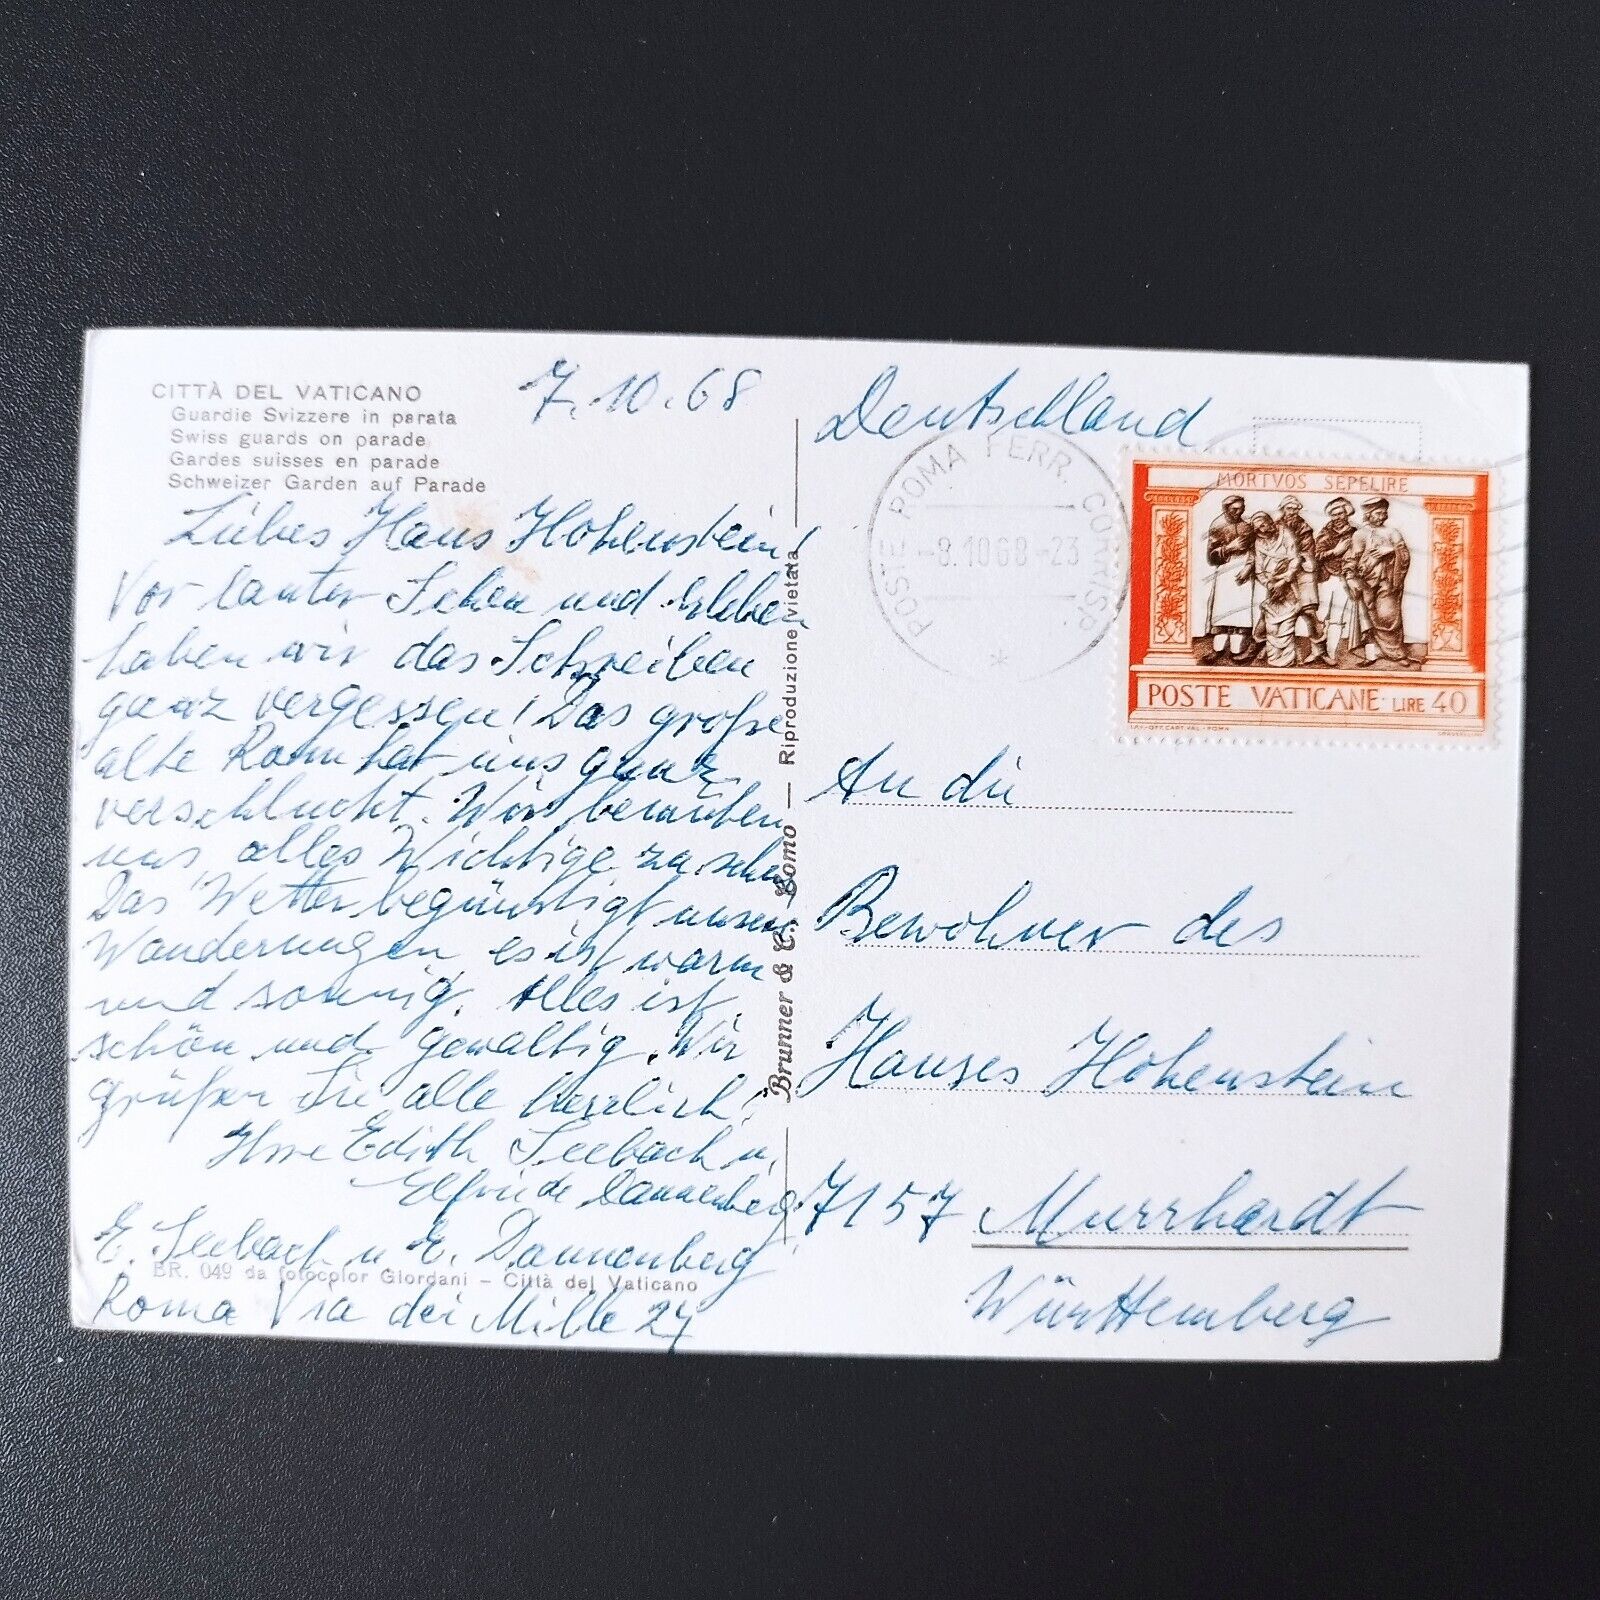 CITTÀ DEL VATICANO
Guardie Svizzere in parata
Swiss guards on parade
Gardes suisses en parade
Schweizer Garden auf Parade
7.10.68
Liebes Haus Hohenstein!
Vor lauter Sehen und Erleben
haben wir das Schreiben
ganz vergessen! Das große
alte Rom hat uns ganz
verschluckt. Wir bemühen
uns, alles Wichtige zu sehen
Das Wetter begünstigt unsere
Wanderungen es ist warm
und sonnig. Alles ist
schön und gewaltig. Wir
grüßen Sie alle herzlich!
Ihre Edith Seebach u.
Elfriede Dannenberg.
E. Seebach u. E. Dannenberg
BR. 049 da fotocolor Giordani – Città del Vaticano
Roma Via dei Mille 24
Brunner & C., Como — Riproduzione vietata
Deutschland
POSTE ROMA FERR. CORRISP.
-8.1068-23
MORTVOS SEPELIRE
POSTE VATICANE LIRE 40
An die
Bewohner des
Hauses Hohenstein
7157 Murrhardt
Württemberg